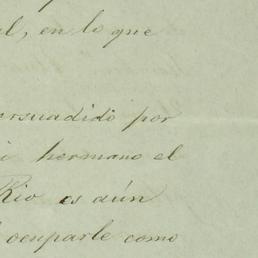 al, en lo que
persuadido por
hermano el
Rio es aún
ocuparle como